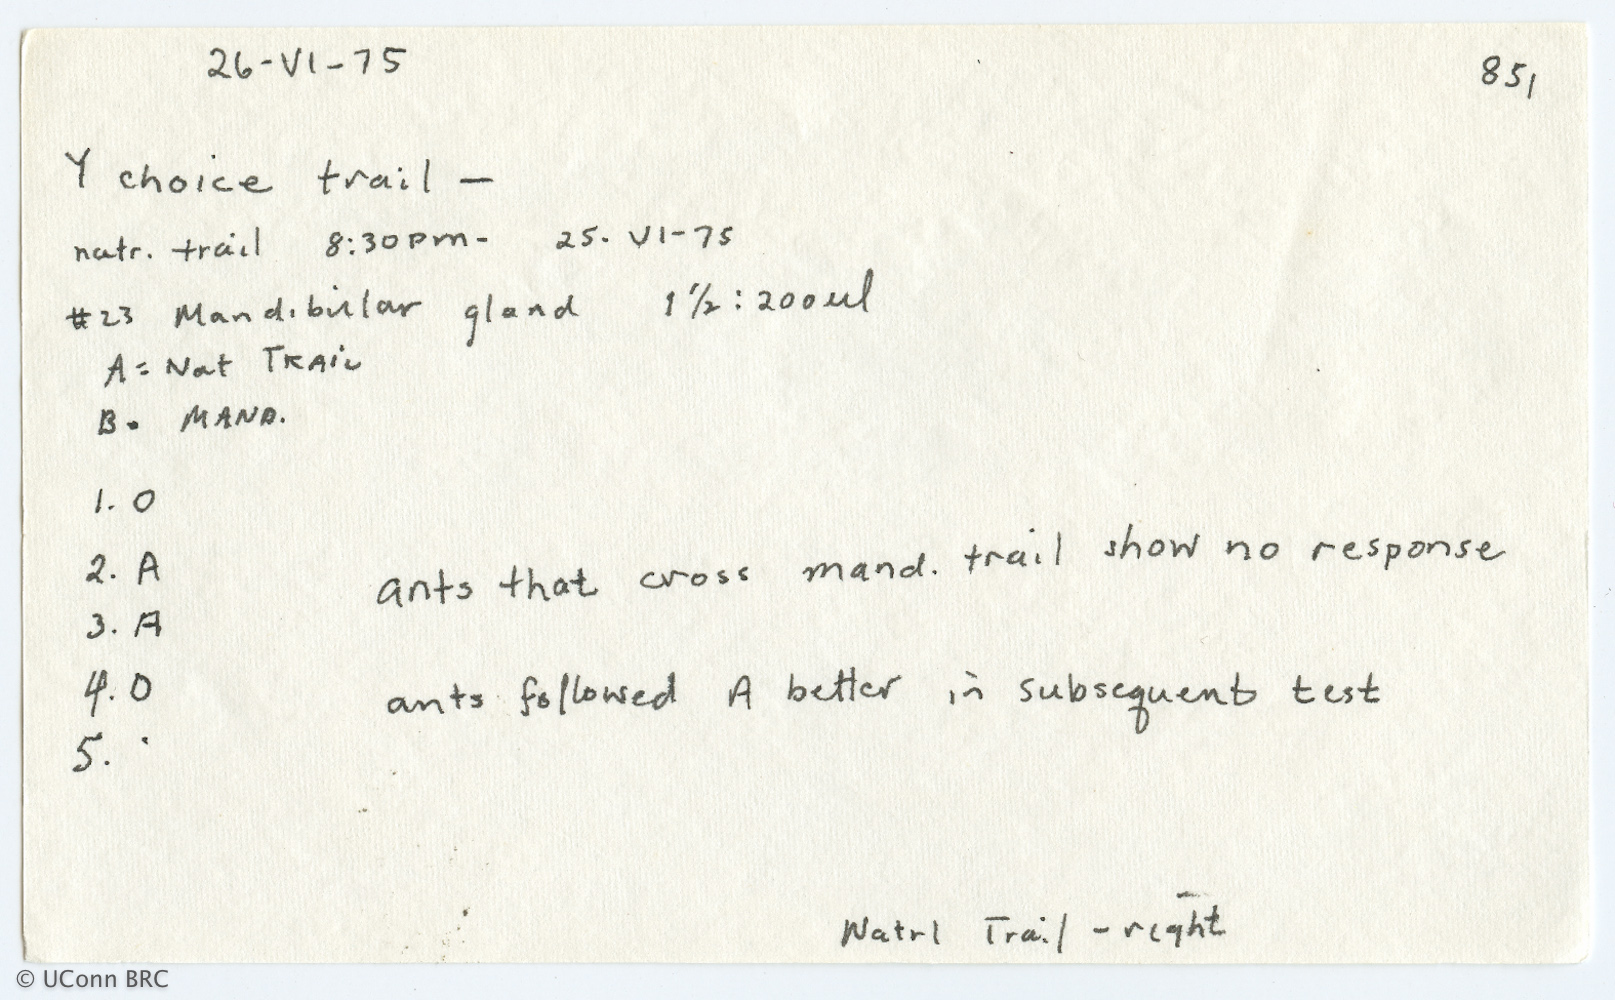 26-VI-75
851
Y choice trail —
natr. trail 8:30pm- 25-VI-75
#23 Mandibular gland 1½:200ul
A= Nat TRAIL
B. MAND.
1. O
2. A
3. A
4. O
5. ·
ants that cross mand. trail show no response
ants followed A better in subsequent test
Natrl Trail - right
© UConn BRC